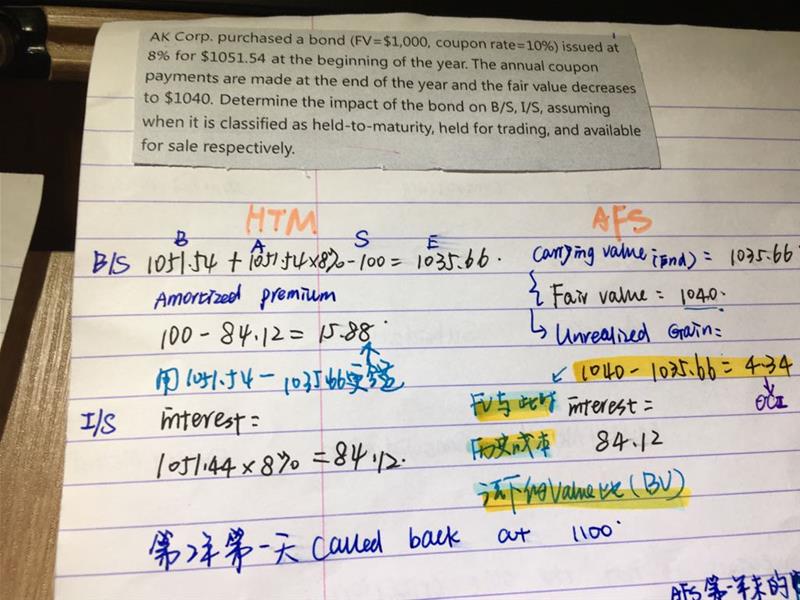 AK Corp. purchased a bond (FV=$1,000, coupon rate=10%) issued at
8% for $1051.54 at the beginning of the year. The annual coupon
payments are made at the end of the year and the fair value decreases
to $1040. Determine the impact of the bond on B/S, I/S, assuming
when it is classified as held-to-maturity, held for trading, and available
for sale respectively.
HTM
B A S E
B/S 1051.54 + 1051.54×8% - 100 = 1035.66.
Amortized premium
100 - 84.12 = 15.88
用1051.54 - 1035.66
I/S interest =
1051.44 × 8% = 84.12.
AFS
Carrying value (End) = 1035.66
Fair value = 1040.
↳ Unrealized Gain =
1040 - 1035.66 = 4.34
OCI
FV与此时
历史成本
法下的Value比 (BV)
interest =
84.12
第2年第一天 Called back at 1100
AFS第一年末的